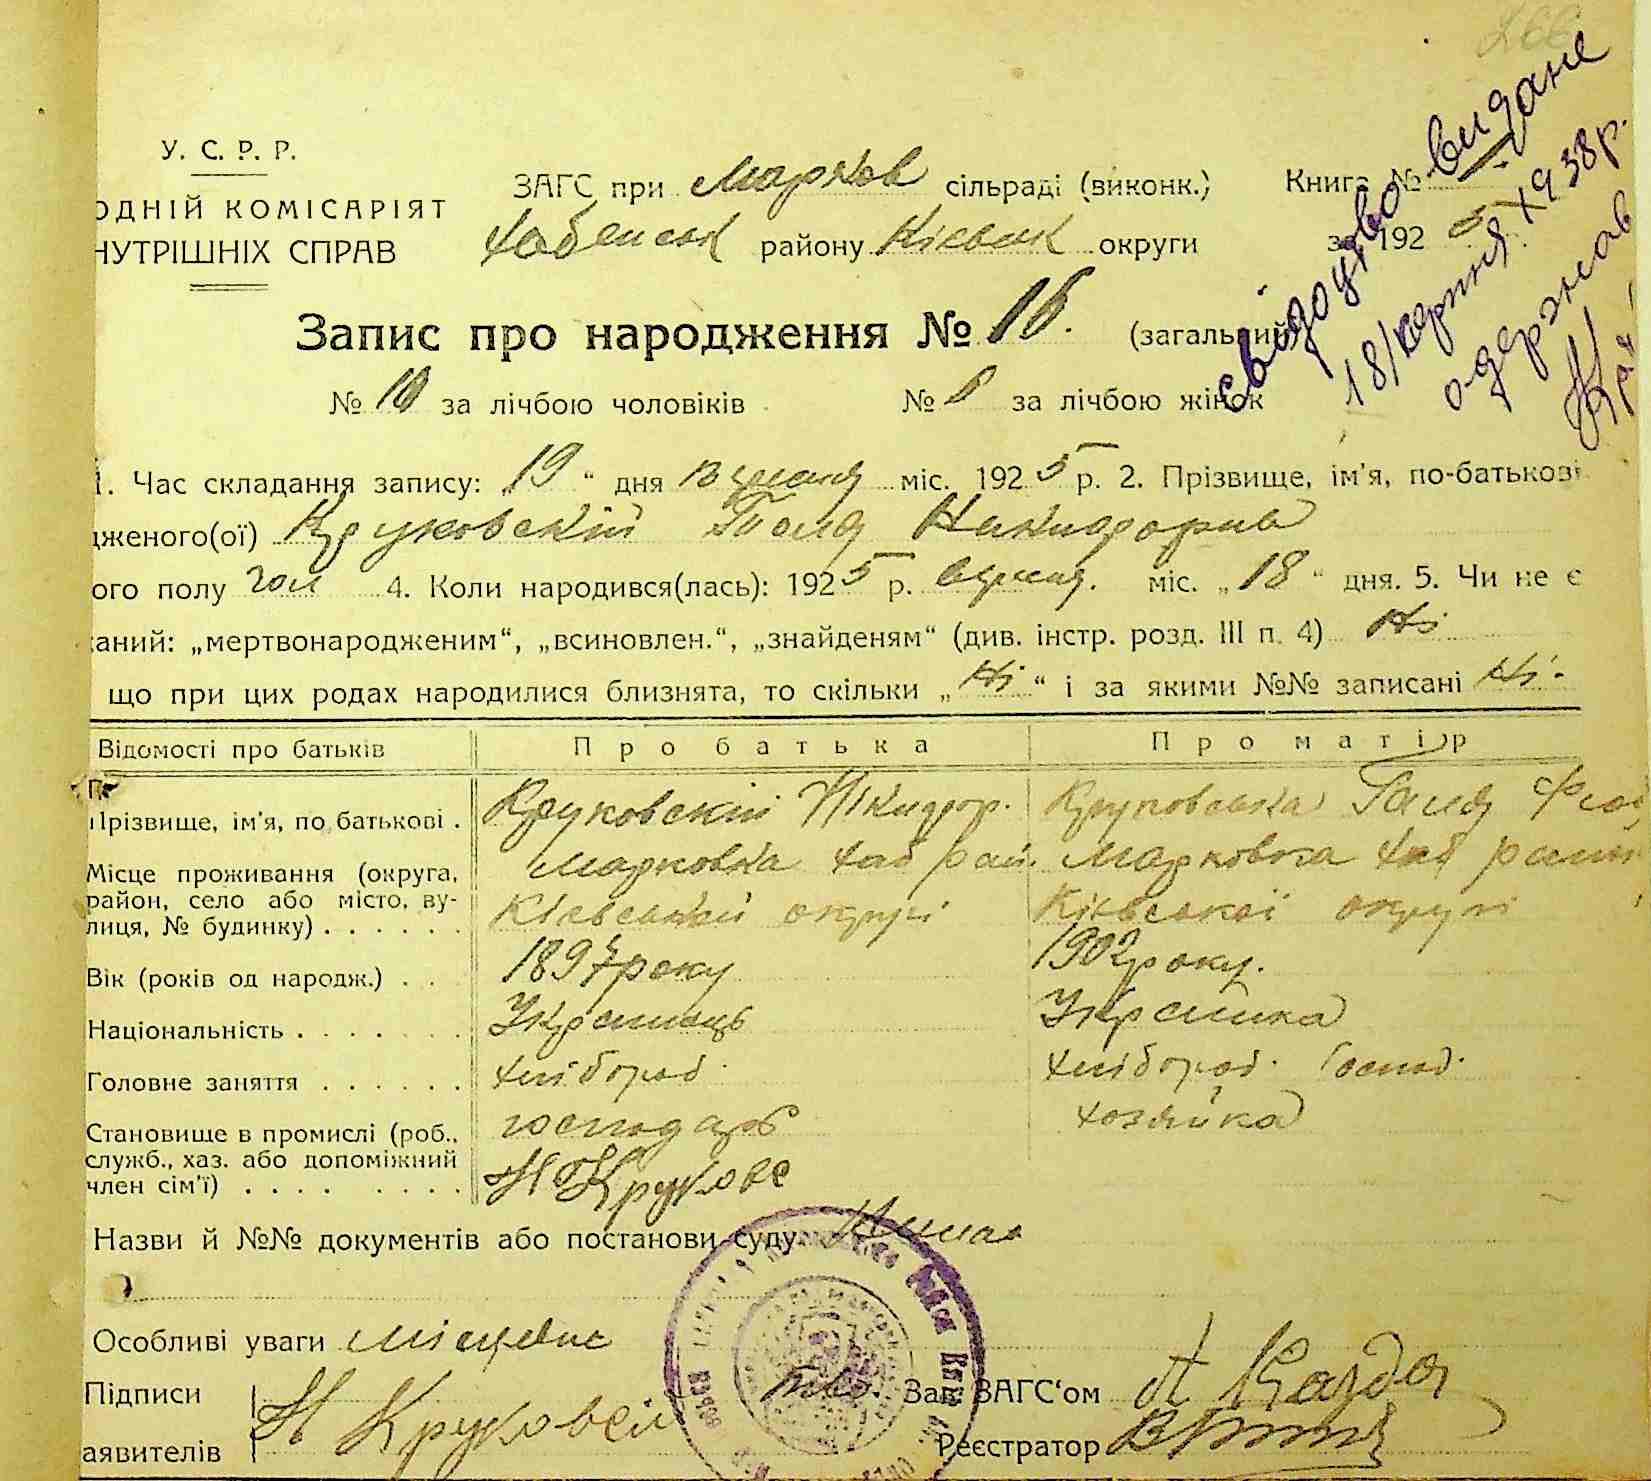 266
свідоцтво видане
18/серпня 1938 р.
одержав
У. С. Р. Р.
ОДНІЙ КОМІСАРІЯТ
НУТРІШНІХ СПРАВ
ЗАГС при Марков сільраді (виконк.) Книга №
Хабенськ району Київськ округи за 1925
Запис про народження № 16. (загальний
№ 10 за лічбою чоловіків № за лічбою жінок
1. Час складання запису: „19“ дня вересня міс. 1925 р. 2. Прізвище, ім'я, по-батькові
дженого(ої) Круковскій
ого полу чол 4. Коли народився(лась): 1925 р. вересня. міс. „18“ дня. 5. Чи не є
каний: „мертвонародженим“, „всиновлен.“, „знайденям“ (див. інстр. розд. III п. 4) Ні
що при цих родах народилися близнята, то скільки „Ні“ і за якими №№ записані Ні.
Відомості про батьків Про батька Про матір
Прізвище, ім'я, по батькові . Круковскій Нікидор. Круковська Ганя
Місце проживання (округа, Марковка Хаб рай. Марковка Хаб район
район, село або місто, ву- Київської округи Київської округи
лиця, № будинку) . . . . . .
Вік (років од народж.) . . 1897 року 1902 року.
Національність . . . . . . Українець Українка
Головне заняття . . . . . . хлібороб хлібороб. Господ.
Становище в промислі (роб., господарь хозяйка
служб., хаз. або допоміжний
член сім'ї) . . . . . . . . Н Круковс
Назви й №№ документів або постанови суду Немає
Особливі уваги місцеве
Підписи Зав. ЗАГС'ом
аявителів Н Круковскі Реєстратор